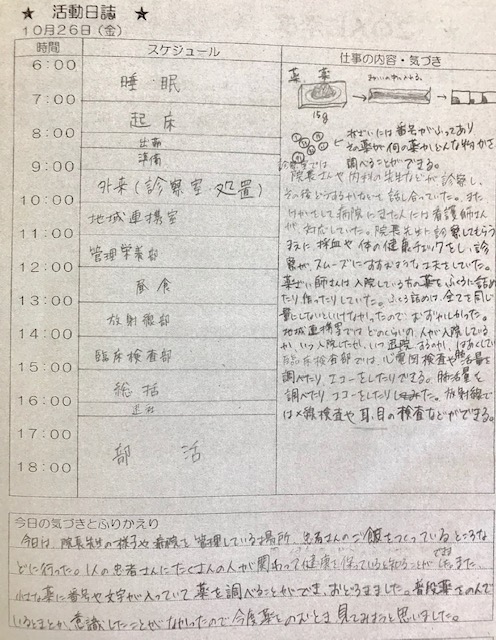 ★ 活動日誌 ★
10月26日(金)
時間
スケジュール
仕事の内容・気づき
6:00
睡・眠
7:00
起床
8:00
出勤
準備
9:00
外来(診察室・処置)
10:00
地域連携室
11:00
管理栄養部
12:00
昼食
13:00
放射線部
14:00
臨床検査部
15:00
総括
16:00
退社
17:00
部 活
18:00
薬 薬
15g
には番号がふってあり
その薬が何の薬かどんな物かを
調べることができる。
診察室では
院長さんや内科の先生などが診察し、
その後どうするかなど話し合っていた。また
けがをして病院にきた人には看護師さん
が、対応していた。院長先生に診察してもらう
まえに採血や体の健康チェックをし、診
察がスムーズにおすすむような工夫をしていた。
薬ざい師さんは入院している方の薬をふくろに詰め
たり作ったりしていた。ふくろ詰めは、全てを同じ
量にしないといけなかったのでむずかしかった。
地域連携室ではどのくらいの人が入院している
か、いつ入院したか、いつ退院するのか、はあくしていた
臨床検査部では、心電図検査や肺活量を
調べたり、エコーをしたりできる。肺活量を
調べたりエコーをしたりしてみた。放射線で
は×線検査や耳、目の検査などができる。
今日の気づきとふりかえり
今日は、院長先生の様子や病院を管理している場所、患者さんのご飯をつくっているところな
どに行った。1人の患者さんにたくさんの人が関わって健康を保っていると知ることができました。また
小さな薬に番号や文字が入っていて薬を調べることができ、おどろきました。普段薬をのんで
いるときとか、意識したことがなかったので今度薬をのむとき見てみようと思いました。